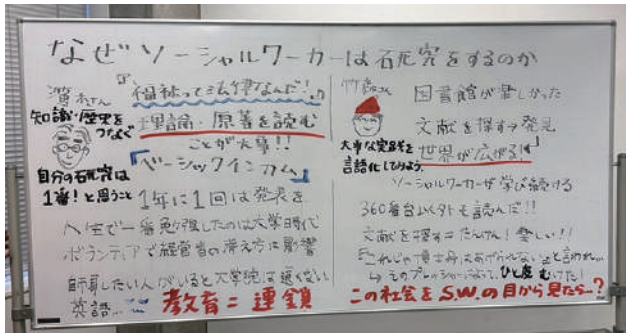 なぜソーシャルワーカーは研究をするのか
『福祉って法律なんだ!』
知識・歴史を
つなぐ
理論・原著を読む
ことが大事!!
『ベーシックインカム』
自分の研究は
1番!と思うこと
1年に1回は発表を
人生で一番勉強したのは大学時代
ボランティアで経営者の考え方に影響
師事したい人がいると大学院は遠くない
英語…
教育=連鎖
図書館が楽しかった
文献を探す→発見
世界が広がる!
大事な実践を
言語化してみよう
ソーシャルワーカーが学び続ける
360番台以外も読んだ!!
文献を探す=たんけん!楽しい!!
これじゃ博士号はあげられないよと言われ…
そのプレッシャー ひと皮むけた!
この社会をS.W.の目から見たら…?